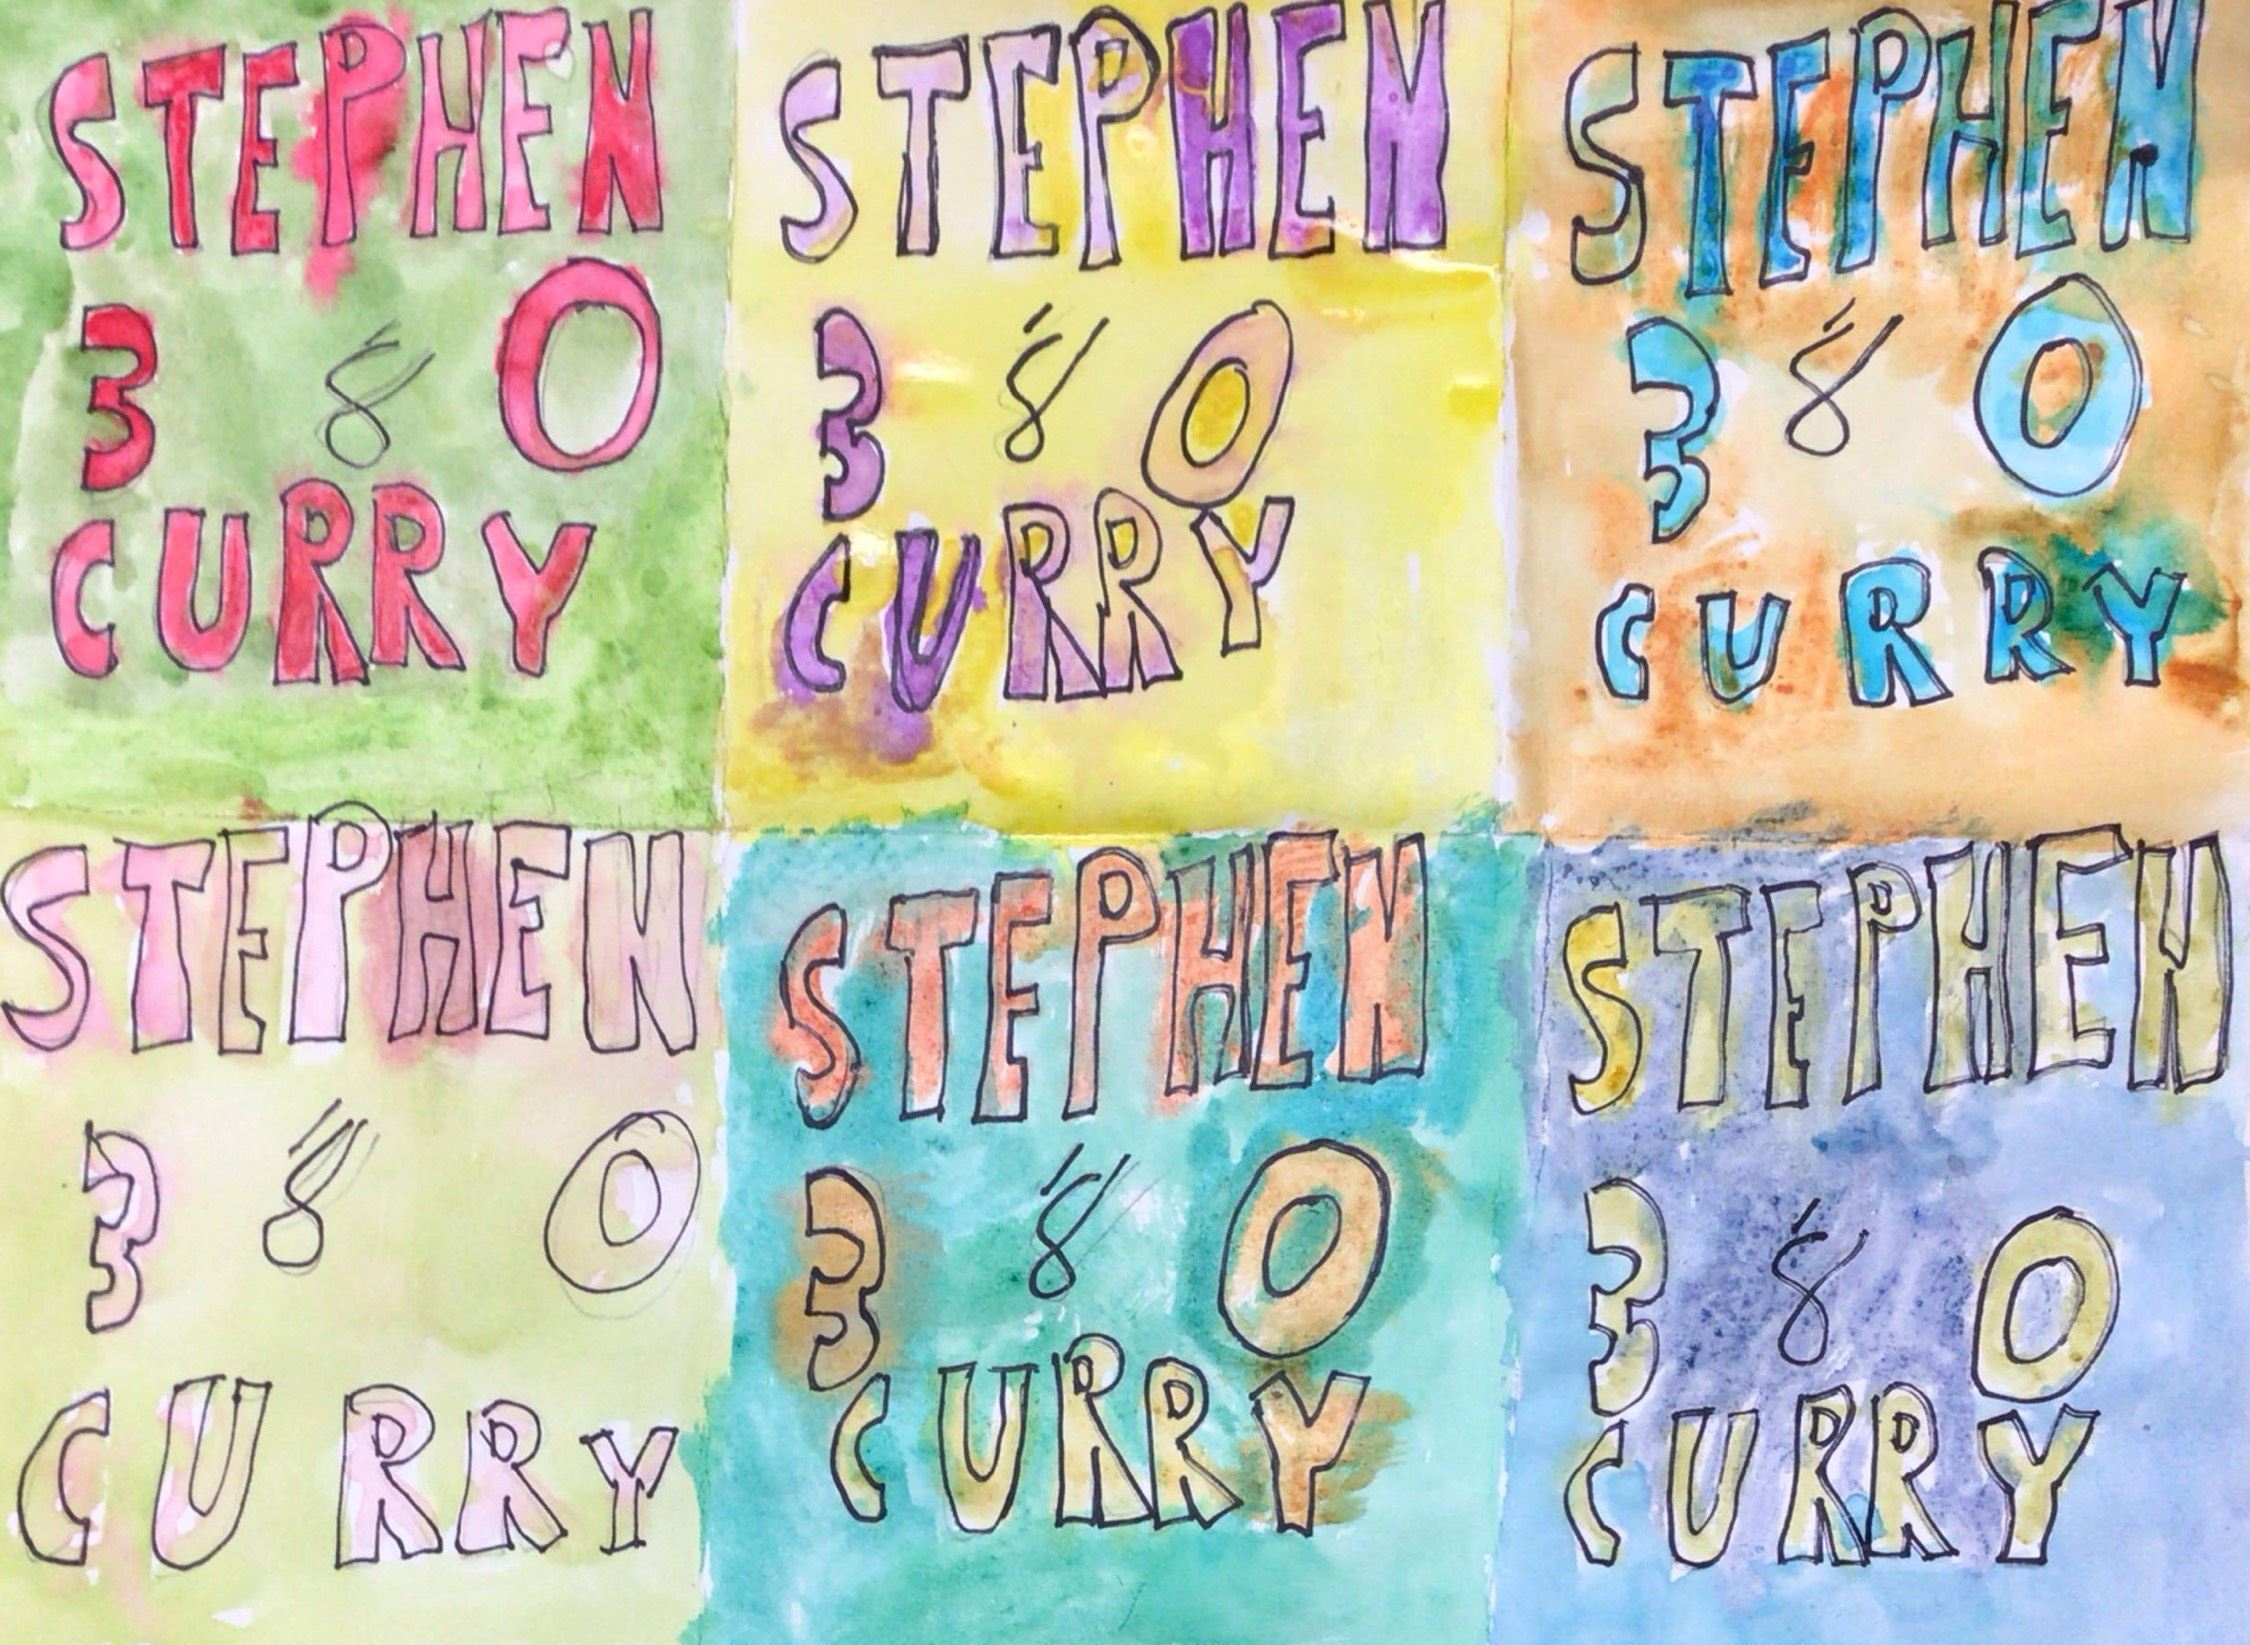 STEPHEN
3 8 0
CURRY
STEPHEN
3 8 0
CURRY
STEPHEN
3 8 0
CURRY
STEPHEN
3 8 0
CURRY
STEPHEN
3 8 0
CURRY
STEPHEN
3 8 0
CURRY